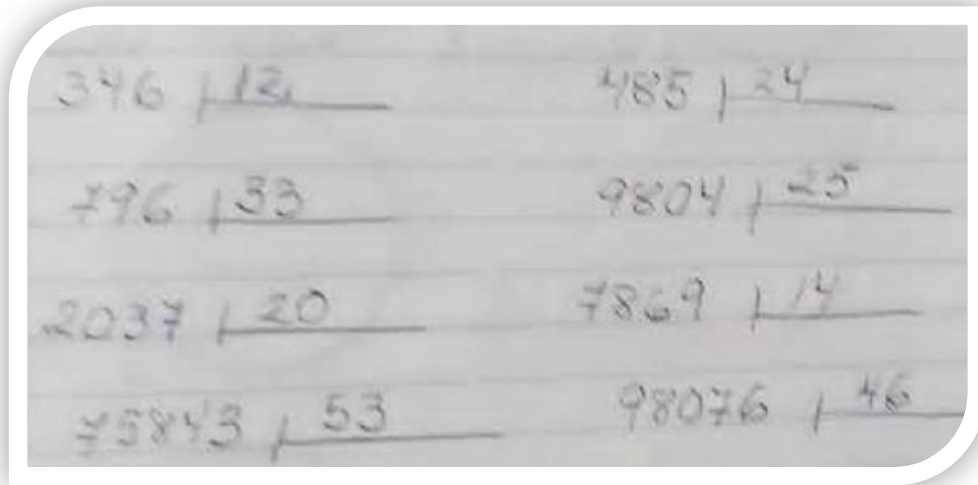 346 12 485 24
796 33 9804 25
2037 20 7869 14
75843 53 98076 46